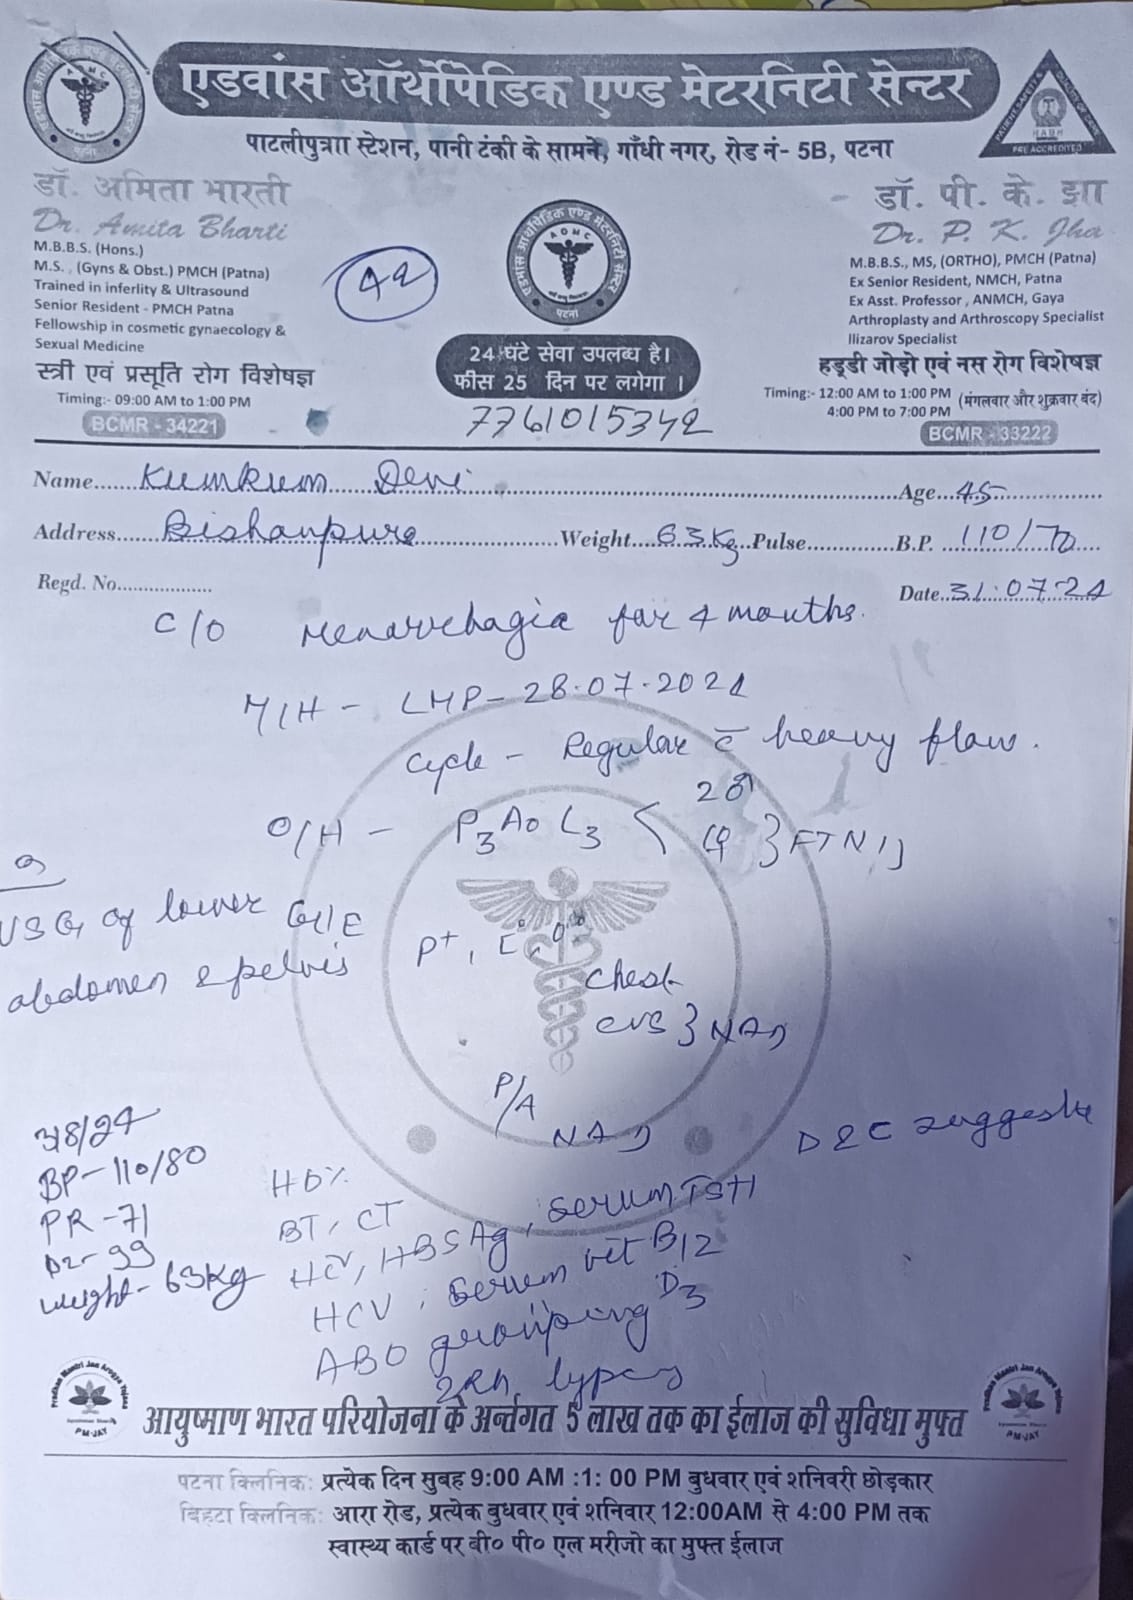 एडवांस ऑर्थोपेडिक एण्ड मेटरनिटी सेन्टर
पाटलीपुत्रा स्टेशन, पानी टंकी के सामने, गाँधी नगर, रोड नं- 5B, पटना
डॉ. अमिता भारती
Dr. Amita Bharti
M.B.B.S. (Hons.)
M.S. , (Gyns & Obst.) PMCH (Patna)
Trained in inferlity & Ultrasound
Senior Resident - PMCH Patna
Fellowship in cosmetic gynaecology &
Sexual Medicine
स्त्री एवं प्रसूति रोग विशेषज्ञ
Timing:- 09:00 AM to 1:00 PM
BCMR - 34221
42
AOMC
पटना
24 घंटे सेवा उपलब्ध है।
फीस 25 दिन पर लगेगा ।
7761015342
NABH
PRE ACCREDITED
डॉ. पी. के. झा
Dr. P. K. Jha
M.B.B.S., MS, (ORTHO), PMCH (Patna)
Ex Senior Resident, NMCH, Patna
Ex Asst. Professor , ANMCH, Gaya
Arthroplasty and Arthroscopy Specialist
Ilizarov Specialist
हड्डी जोड़ो एवं नस रोग विशेषज्ञ
Timing:- 12:00 AM to 1:00 PM (मंगलवार और शुक्रवार बंद)
4:00 PM to 7:00 PM
BCMR - 33222
Name Kumkum Devi Age 45
Address Bishanpura Weight 63Kg Pulse B.P. 110/70
Regd. No. Date 31.07.24
C/O Menorrhagia for 4 months.
M/H - LMP- 28.07.2024
Cycle - Regular c̄ heavy flow.
O/H - P3 A0 L3 < 2♂ 1♀ } FTND
USG of lower
abdomen & pelvis
G/E
P+,
Chest
CVS } NAD
P/A
NAD
D&C suggested
3/8/24
BP-110/80
PR-71
99
weight-63Kg
Hb%
BT, CT
HIV, HBSAg, Serum TSH
HCV, Serum vit B12
D3
ABO grouping
& Rh typing
Pradhan Mantri Jan Arogya Yojana
PM-JAY
आयुष्माण भारत परियोजना के अर्न्तगत 5 लाख तक का ईलाज की सुविधा मुफ्त
पटना क्लिनिक: प्रत्येक दिन सुबह 9:00 AM :1: 00 PM बुधवार एवं शनिवरी छोड़कार
बिहटा क्लिनिक: आरा रोड, प्रत्येक बुधवार एवं शनिवार 12:00AM से 4:00 PM तक
स्वास्थ्य कार्ड पर बी० पी० एल मरीजो का मुफ्त ईलाज